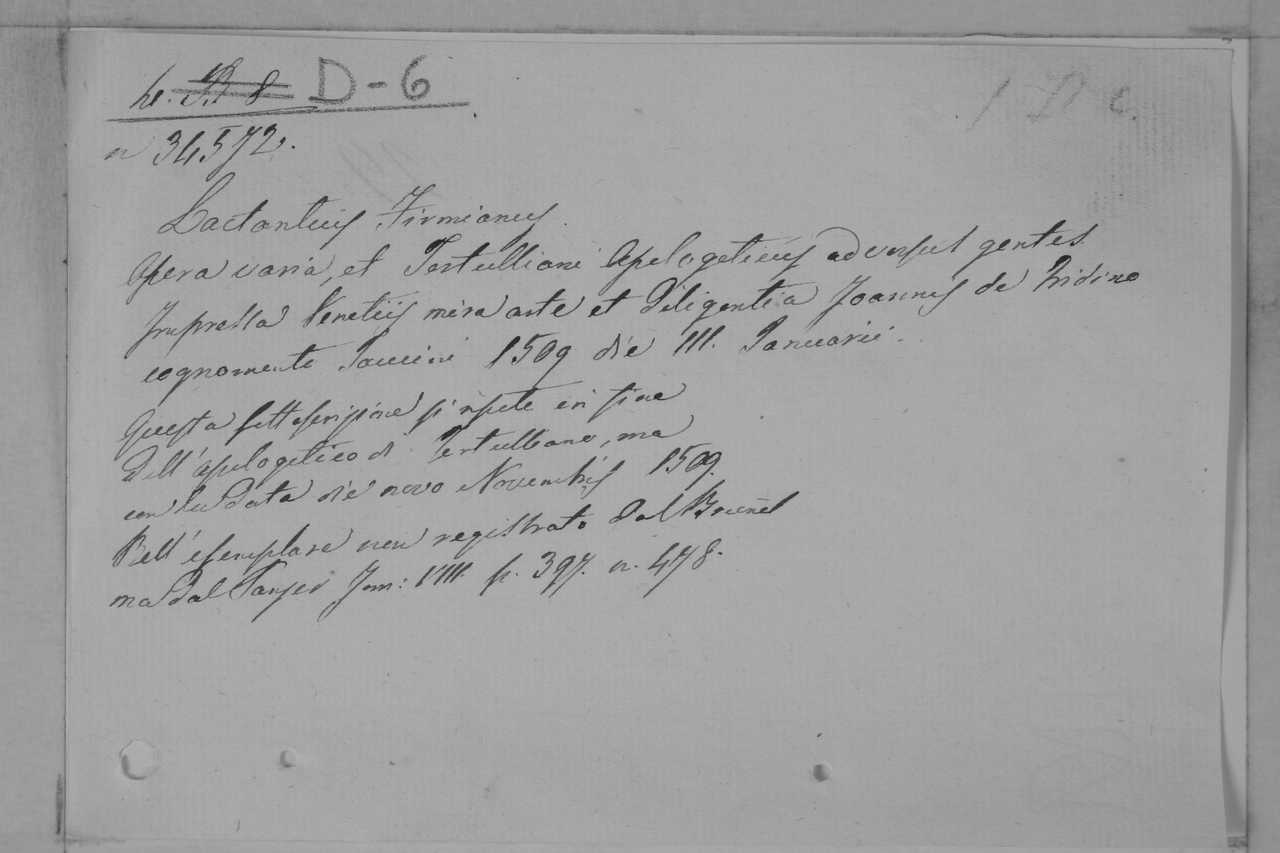 D-6
n 34572.
Lactantius Firmianus.
Opera varia, et Tertulliani Apologeticus adversus gentes.
Impressa Venetiis mira arte et diligentia Joannis de Tridino
cognomento Taccuini 1509 die III. Januarii.
Questa sottoscrizione si ripete in fine
dell'apologetico di Tertulliano, ma
con la data die novo Novembris 1509.
Bell'esemplare non registrato dal Brunet
ma dal Panzer Tom: VIII. p. 397. n. 478.